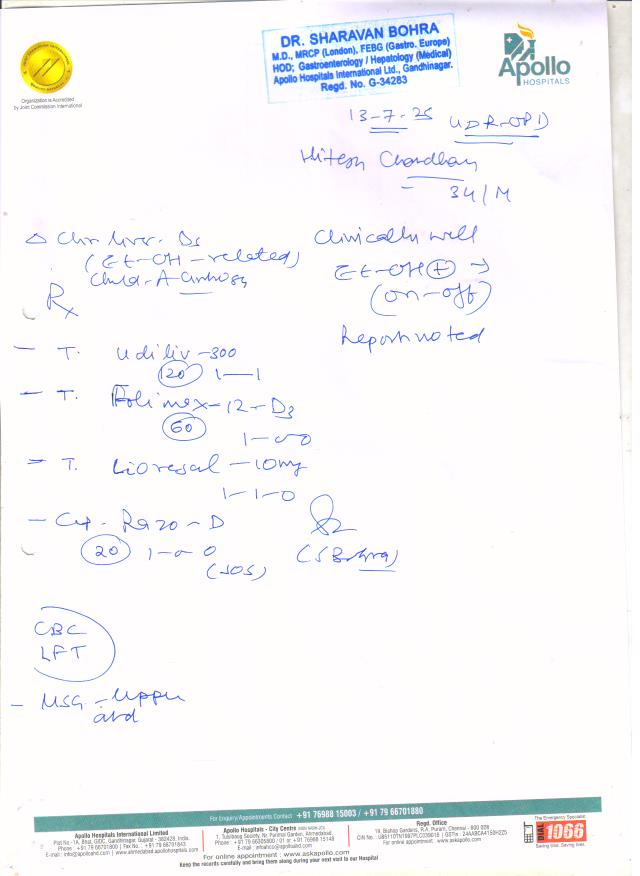 DR. SHARAVAN BOHRA
M.D., MRCP (London), FEBG (Gastro. Europe)
HOD; Gastroenterology / Hepatology (Medical)
Apollo Hospitals International Ltd., Gandhinagar.
Regd. No. G-34283
Apollo
HOSPITALS
Organization is Accredited
by Joint Commission International
13-7-25 UDR-OPD
Hitesh Chaudhary
34/M
Δ Chr. liver. Ds
(Et-OH-related)
Child-A Cirrhosis
Clinically well
Et-OH (+) →
(on-off)
Report noted
Rx
- T. Udiliv-300
120 1—1
- T. Folimex-12-D3
60
1-0-0
- T. Lioresal-10mg
1-1-0
- Cap. Razo-D
20 1-0-0
(SOS)
(S Bohra)
CBC
LFT
- USG-Upper
abd
For Enquiry/Appointments Contact +91 76988 15003 / +91 79 66701880
Apollo Hospitals International Limited
Plot No.-1A, Bhat, GIDC, Gandhinagar, Gujarat - 382428, India.
Phone : +91 79 66701800 | Fax No. : +91 79 66701843
E-mail : info@apolloahd.com | www.ahmedabad.apollohospitals.com
Apollo Hospitals - City Centre
1, Tulsibaug Society, Nr. Parimal Garden, Ahmedabad.
Phone : +91 79 66305800 / 01 or +91 76988 15148
E-mail : infoahcc@apolloahd.com
Regd. Office
19, Bishop Gardens, R.A. Puram, Chennai - 600 028
For online appointment : www.askapollo.com
The Emergency Specialist
DIAL 1066
Saving time. Saving lives.
For online appointment : www.askapollo.com
Keep the records carefully and bring them along during your next visit to our Hospital